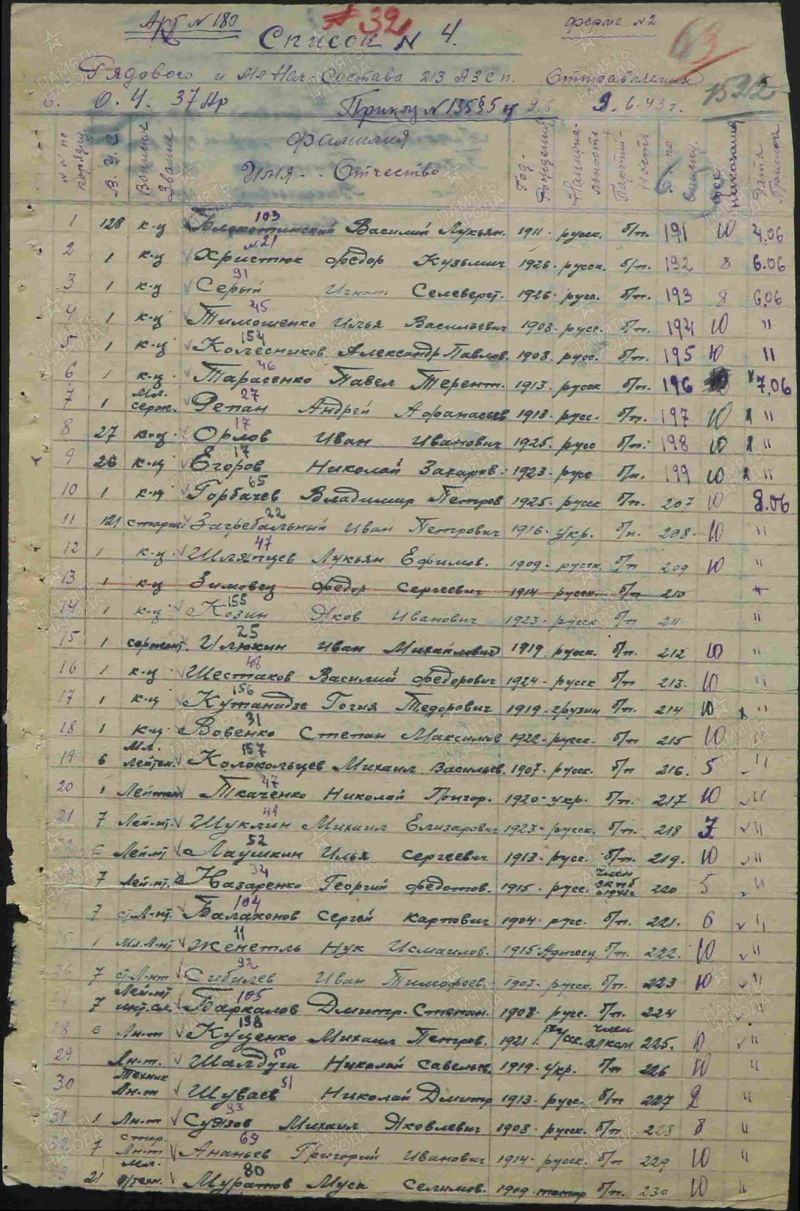 Акт № 180 # 39 форма №2
Список № 4. 63
Рядового и Мл Нач-Состава 213 АЗСп. Отправления 15312
0.4. 37 Ар Приказ № 135 § 5 9.6.43 г.
№ № по порядку В.У.С. Воинское Звание Фамилия Имя - Отчество Год Рождения Национальность Партийность наказания Дата
1 128 к-ц 103 Василий Лукьян. 1911 русск. б/п. 191 10 4.06
2 1 к-ц №21 Христюк Федор Кузьмич 1926 русск. б/п. 192 8 6.06
3 1 к-ц 91 Серый Игнат Селеверст. 1926 русс. б/п. 193 8 6.06
4 1 к-ц 45 Тимошенко Илья Васильевич 1908 русс. б/п. 194 10 "
5 1 к-ц 154 Колесников Александр Павлов. 1908 русс. б/п. 195 10 "
6 1 к-ц 46 Тарасенко Павел Терент. 1913 русск б/п. 196 7.06
7 1 Мл. серж. 27 Репан Андрей Афанасьев 1918 русс. б/п. 197 10 "
8 27 к-ц 17 Орлов Иван Иванович 1925 русс б/п. 198 10 "
9 26 к-ц 17 Егоров Николай Захаров. 1923 русс б/п. 199 10 "
10 1 к-ц 65 Горбачев Владимир Петров 1925 русск б/п. 207 10 8.06
11 121 старш. 22 Загребальный Иван Петрович 1916 укр. б/п. 208 10 "
12 1 к-ц 47 Шляпцев Лукьян Ефимов. 1909 русск б/п 209 10 "
13 1 к-ц Зимовец Федор Сергеевич 1914 русск б/п 210 "
14 1 к-ц 155 Козин Яков Иванович 1923 русск б/п 211 "
15 1 сержант. 25 Илюхин Иван Михайлович 1919 русск. б/п. 212 10 "
16 1 к-ц Шестаков Василий Федорович 1924 русск б/п 213 10 "
17 1 к-ц 156 Кутанидзе Гогия Тедорович 1919 грузин б/п. 214 10 "
18 1 к-ц 31 Вовенко Степан Максимов 1922 русс. б/п 215 10 "
19 6 Мл. лейтен. 157 Колокольцев Михаил Васильев. 1907 русск. б/п 216 5 "
20 1 Лейтен 47 Ткаченко Николай Григор. 1920 укр. б/п. 217 10 "
21 7 Лей-нт 41 Шуклин Михаил Елизарович 1923 русск. б/п 218 7 "
6 Лей-нт 52 Лаушкин Илья Сергеевич 1913 русс. б/п 219 10 "
7 Лей-нт. 34 Назаренко Георгий Федотов. 1915 русс. член 220 5 "
7 ст. Л-нт. 104 Балахонов Сергей Карпович 1904 русс. б/п. 221 6 "
25 1 Мл. Л-нт 11 Женетль Нух Исмаилов. 1915 Адыгеец б/п. 222 10 "
26 7 ст. Л-нт 92 Сибилев Иван Тимофеев. 1907 русск. б/п. 223 10 "
7 Лей-нт 105 Баркалов Дмитр. Степан. 1908 русс. б/п 224 "
28 6 Лн-т 158 Куценко Михаил Петров. 1921 русск. член влксм 225. 10 "
29 Лн-т. 50 Шалдуга Николай Савельев 1919 укр. б/п 226 10 "
30 Техник Лн-т 51 Шуваев Николай Дмитр 1913 русс. б/п 227 2 "
31 1 Лн-т 93 Михаил Яковлевич 1908 русс. б/п 228 8 "
7 стар. Лн-т 69 Ананьев Григорий Иванович 1914 русск. б/п 229 10 "
21 Мл. в/техн. 80 Муратов Муск Селимов. 1909 татар б/п. 230 10 "